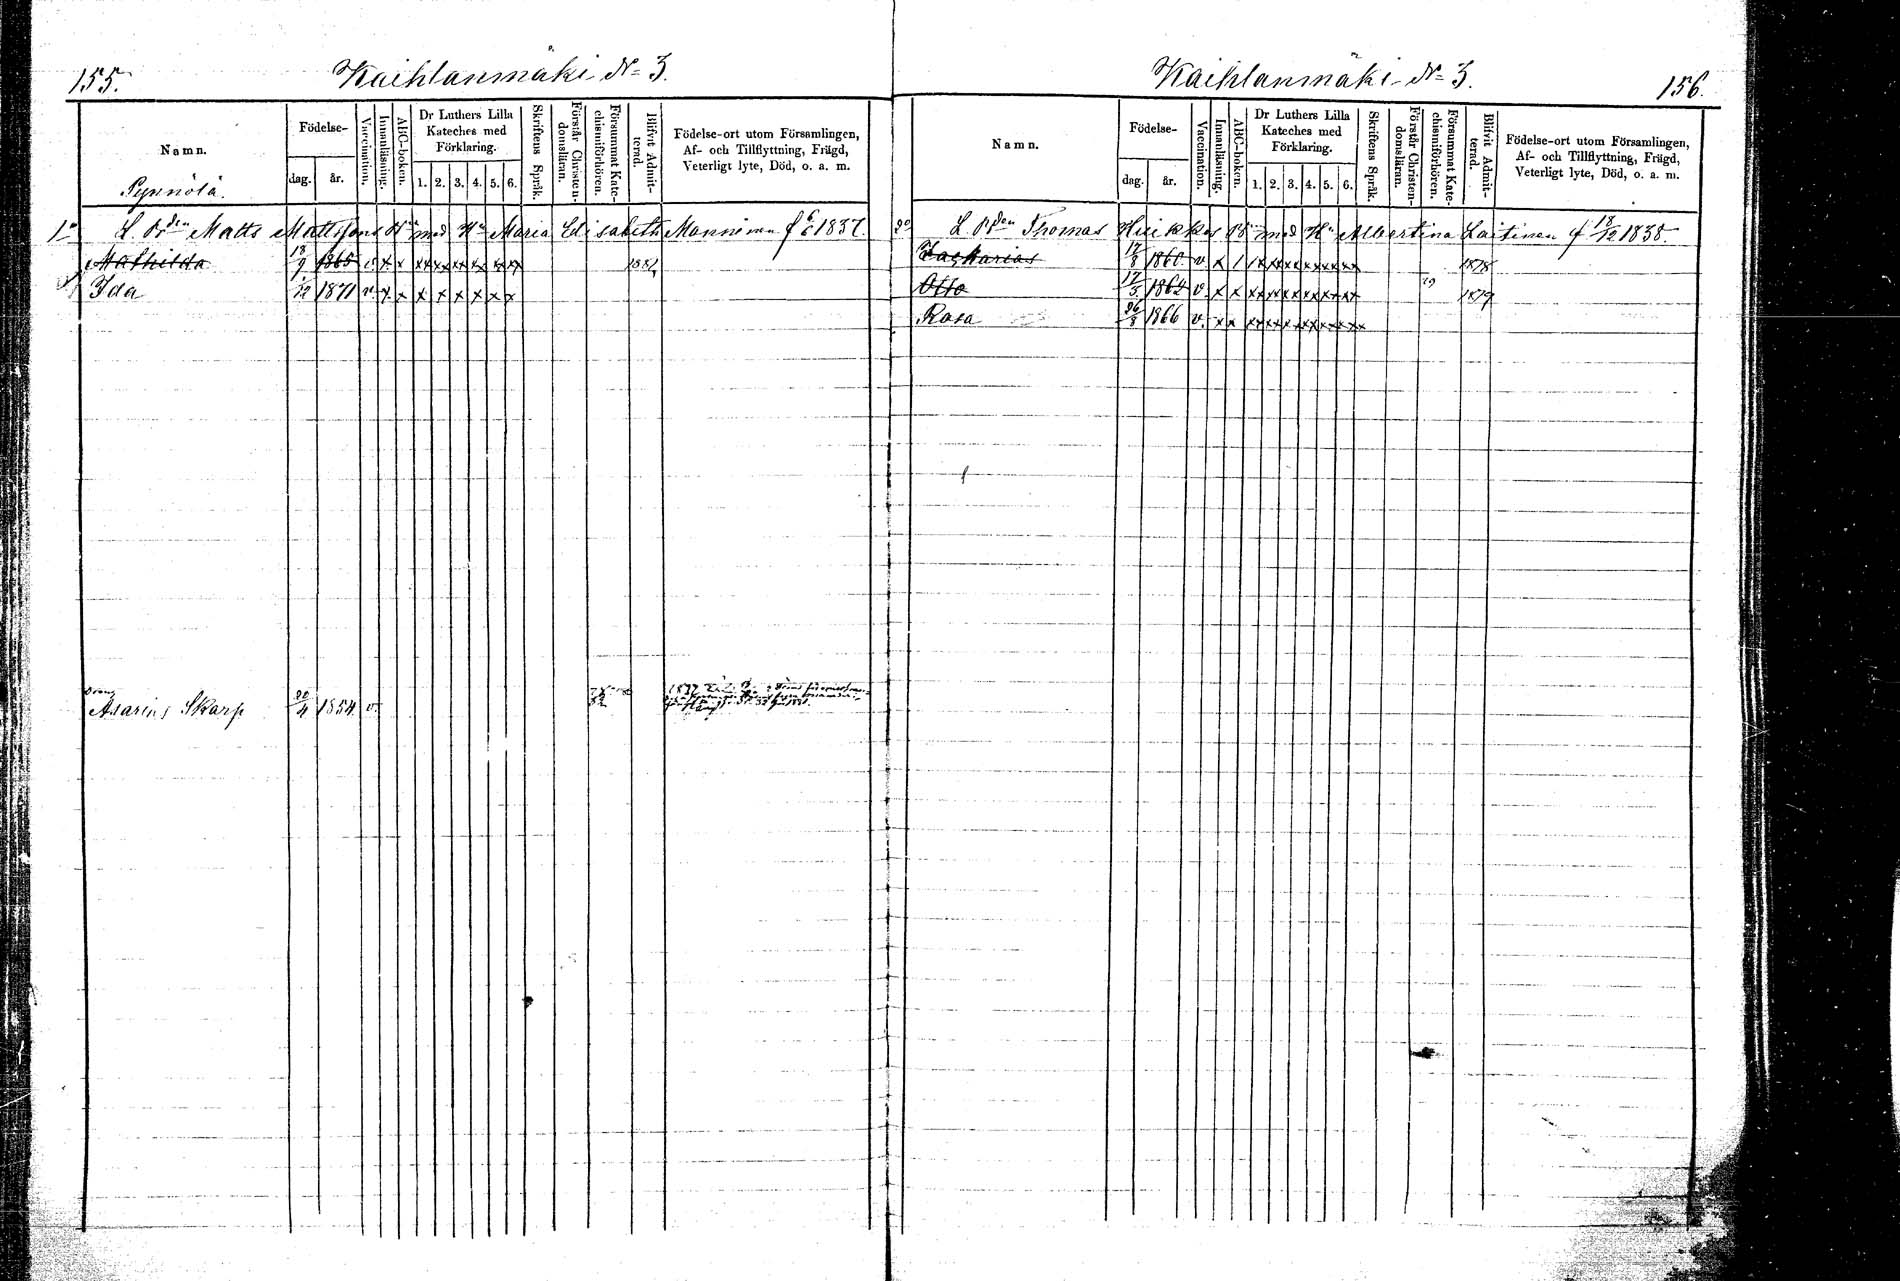 155.
Kaihlanmäki No 3.
Namn.
Pynnölä.
Födelse-
dag.
år.
Vaccination.
Innanläsning.
ABC-boken.
Dr Luthers Lilla
Kateches med
Förklaring.
1. 2. 3. 4. 5. 6.
Skriftens Språk.
Förstår Christen-
domsläran.
Försummat Kate-
chismiförhören.
Blifvit Admit-
terad.
Födelse-ort utom Församlingen,
Af- och Tillflyttning, Frägd,
Veterligt lyte, Död, o. a. m.
1o L. Matts Mattssons med Hu Maria Elisabeth Manninen f 1837.
Mathilda 18/9 1865 v. x x xx xx xx xx xx xx 1881
Ida 1/12 1871 v. x x x x x x x x
Dräng
Asarias Skarp 20/4 1854 v.
Kaihlanmäki No 3.
156.
Namn.
Födelse-
dag.
år.
Vaccination.
Innanläsning.
ABC-boken.
Dr Luthers Lilla
Kateches med
Förklaring.
1. 2. 3. 4. 5. 6.
Skriftens Språk.
Förstår Christen-
domsläran.
Försummat Kate-
chismiförhören.
Blifvit Admit-
terad.
Födelse-ort utom Församlingen,
Af- och Tillflyttning, Frägd,
Veterligt lyte, Död, o. a. m.
2o L. Thomas med Hu Albertina Laitinen f 18/12 1838.
Zacharias 17/8 1860 v. x 1878
Otto 17/3 1864 v. x x xx xx xx xx xx xx 1879
Rosa 26/8 1866 v. x x xx xx xx xx xx xx